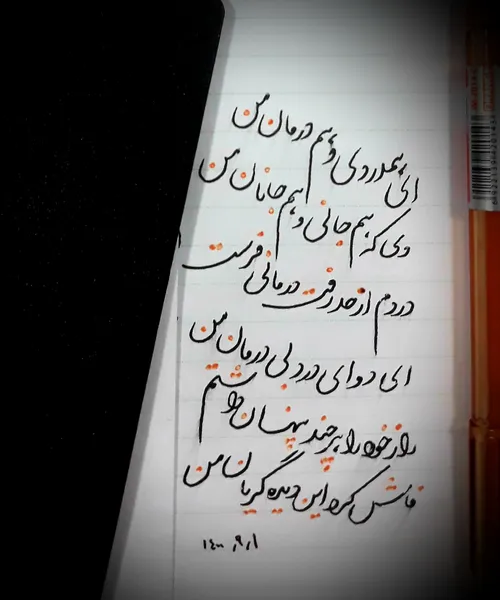 ای همدردی و هم درمان من
وی که هم جانی و هم جانان من
دردم از حد رفت درمانی فرست
ای دوای درد بی درمان من
راز خود را هر چند پنهان داشتم
فاش کرد این دیده گریان من
۱۴۰۰٫۹٫۱